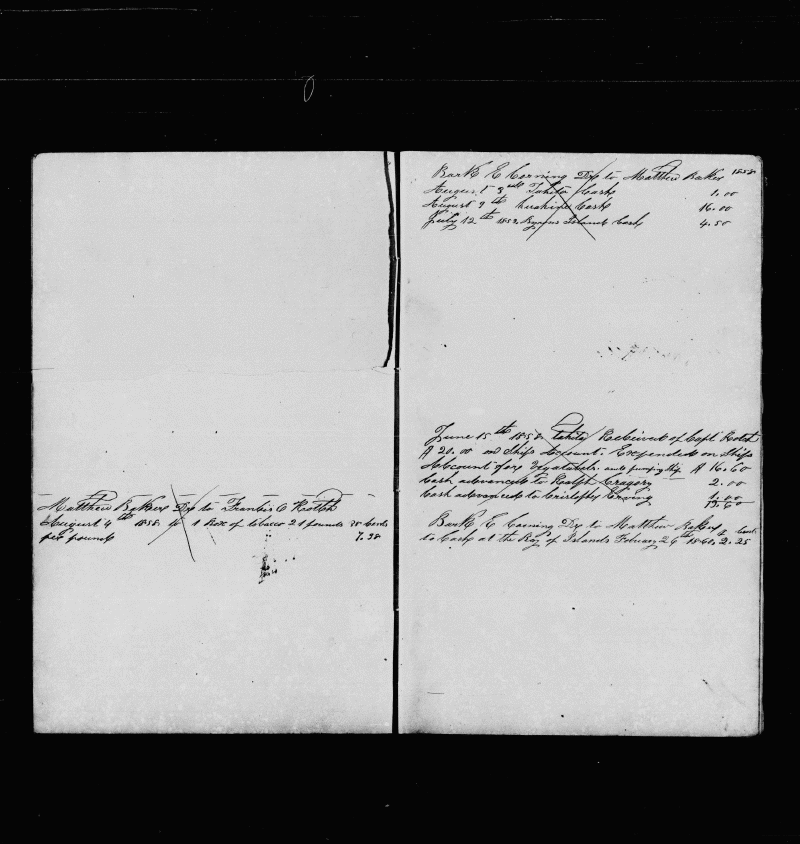 Matthew Baker Dr to Francis C Rotch
August 4th 1858 for 1 Box of tobacco 21 pounds 38 Cents
per pound 7.98
Bark E Corning Dr to Matthew Baker 1858
August 3rd Tahita Cash 1.00
August 9th huahine Cash 16.00
July 12th 1859 Byrons Island Cash 4.50
June 15th 1858 tahita Received of Capt Rotch
$ 20.00 on Ships Account. Expended on Ships
Account for Vegatabels $ 16.60
Cash advanced to Ralph Cragery 2.00
Cash advanced to Cristopher Erving 1.00
19.60
Bark E Corning Dr to Matthew Baker $ Cents
to Cash at the Bay of Islands February 29th 1860 2.25